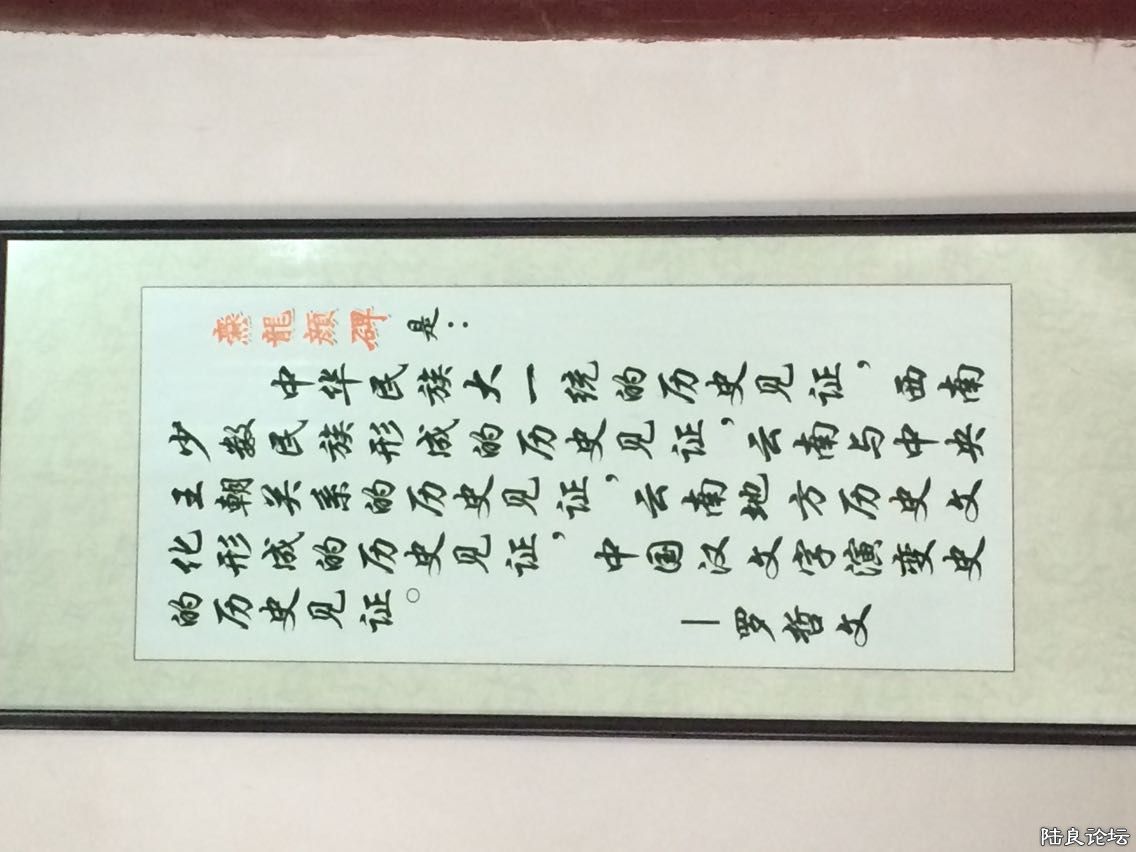 爨龍顏碑是：
中华民族大一统的历史见证，西南
少数民族形成的历史见证，云南与中央
王朝关系的历史见证，云南地方历史文
化形成的历史见证，中国汉文字演变史
的历史见证。
—罗哲文
陆良论坛